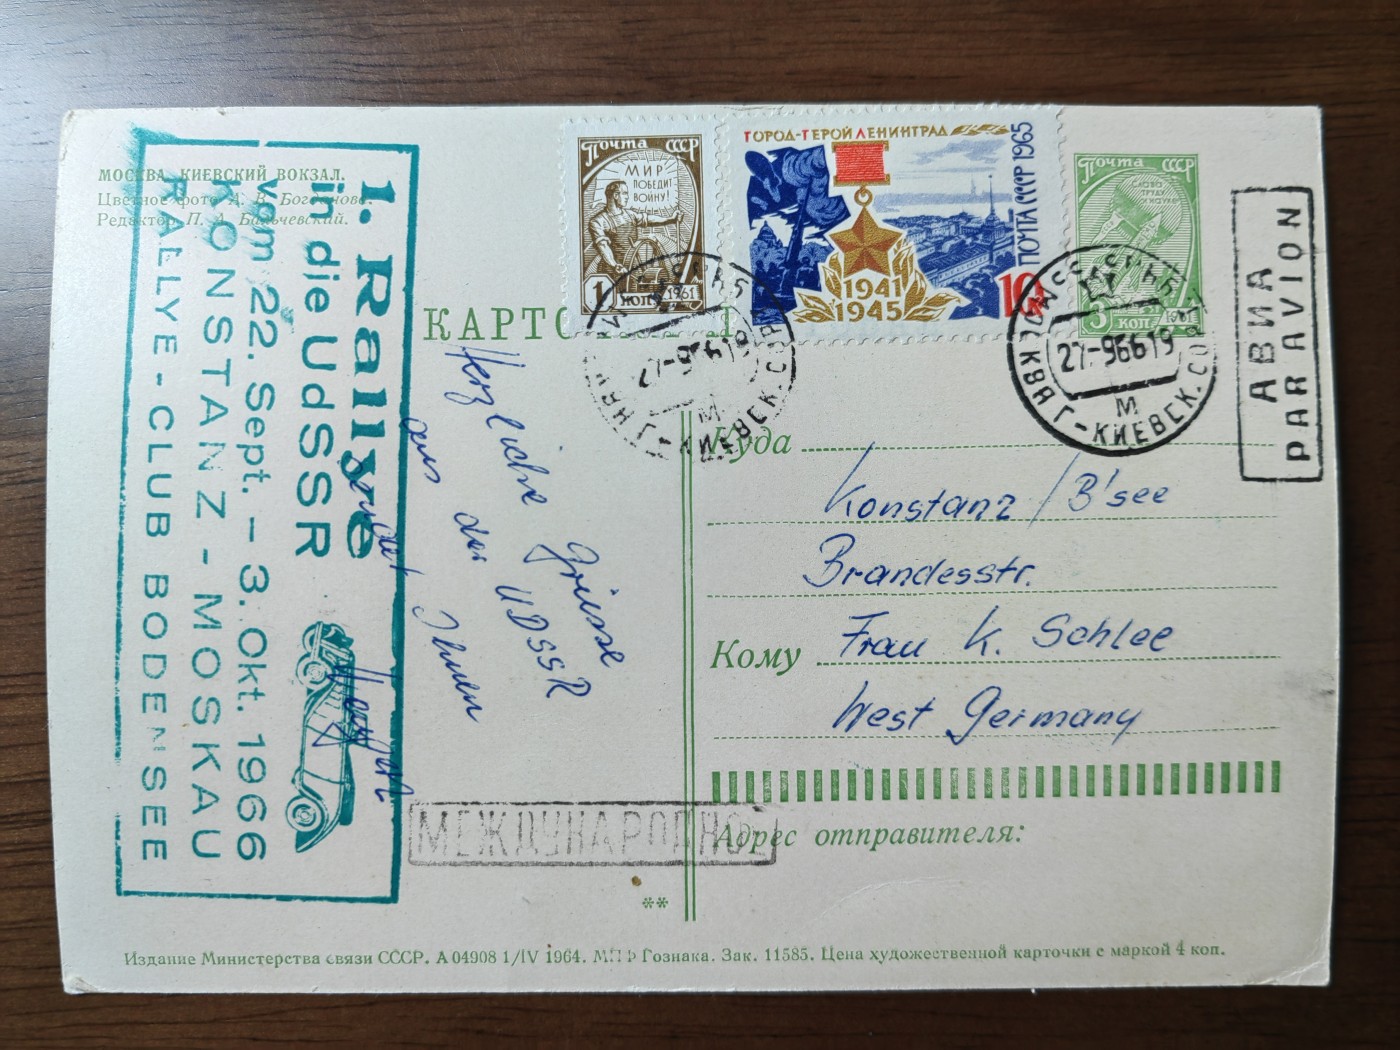 МОСКВА. КИЕВСКИЙ ВОКЗАЛ.
Цветное фото А. В. Богданова.
Редактор П. А. Бальчевский.
1. Rallye
in die UdSSR
vom 22. Sept. – 3. Okt. 1966
KONSTANZ - MOSKAU
RALLYE - CLUB BODENSEE
Почта СССР
МИР
ПОБЕДИТ
ВОЙНУ!
1 КОП. 1961
ГОРОД-ГЕРОЙ ЛЕНИНГРАД
ПОЧТА СССР 1965
1941
1945
10
Почта СССР
СЛАВА
ТРУДУ
И НАУКЕ
3 КОП. 1961
МОСКВА Г-КИЕВСК.
27-96619
М
АВИА
PAR AVION
Herzliche Grüsse
aus der UDSSR
sendet Ihnen
Куда
Konstanz / B'see
Brandesstr.
Кому
Frau K. Schlee
West Germany
МЕЖДУНАРОДНОЕ
Адрес отправителя:
**
Издание Министерства связи СССР. А 04908 1/IV 1964. МПФ Гознака. Зак. 11585. Цена художественной карточки с маркой 4 коп.